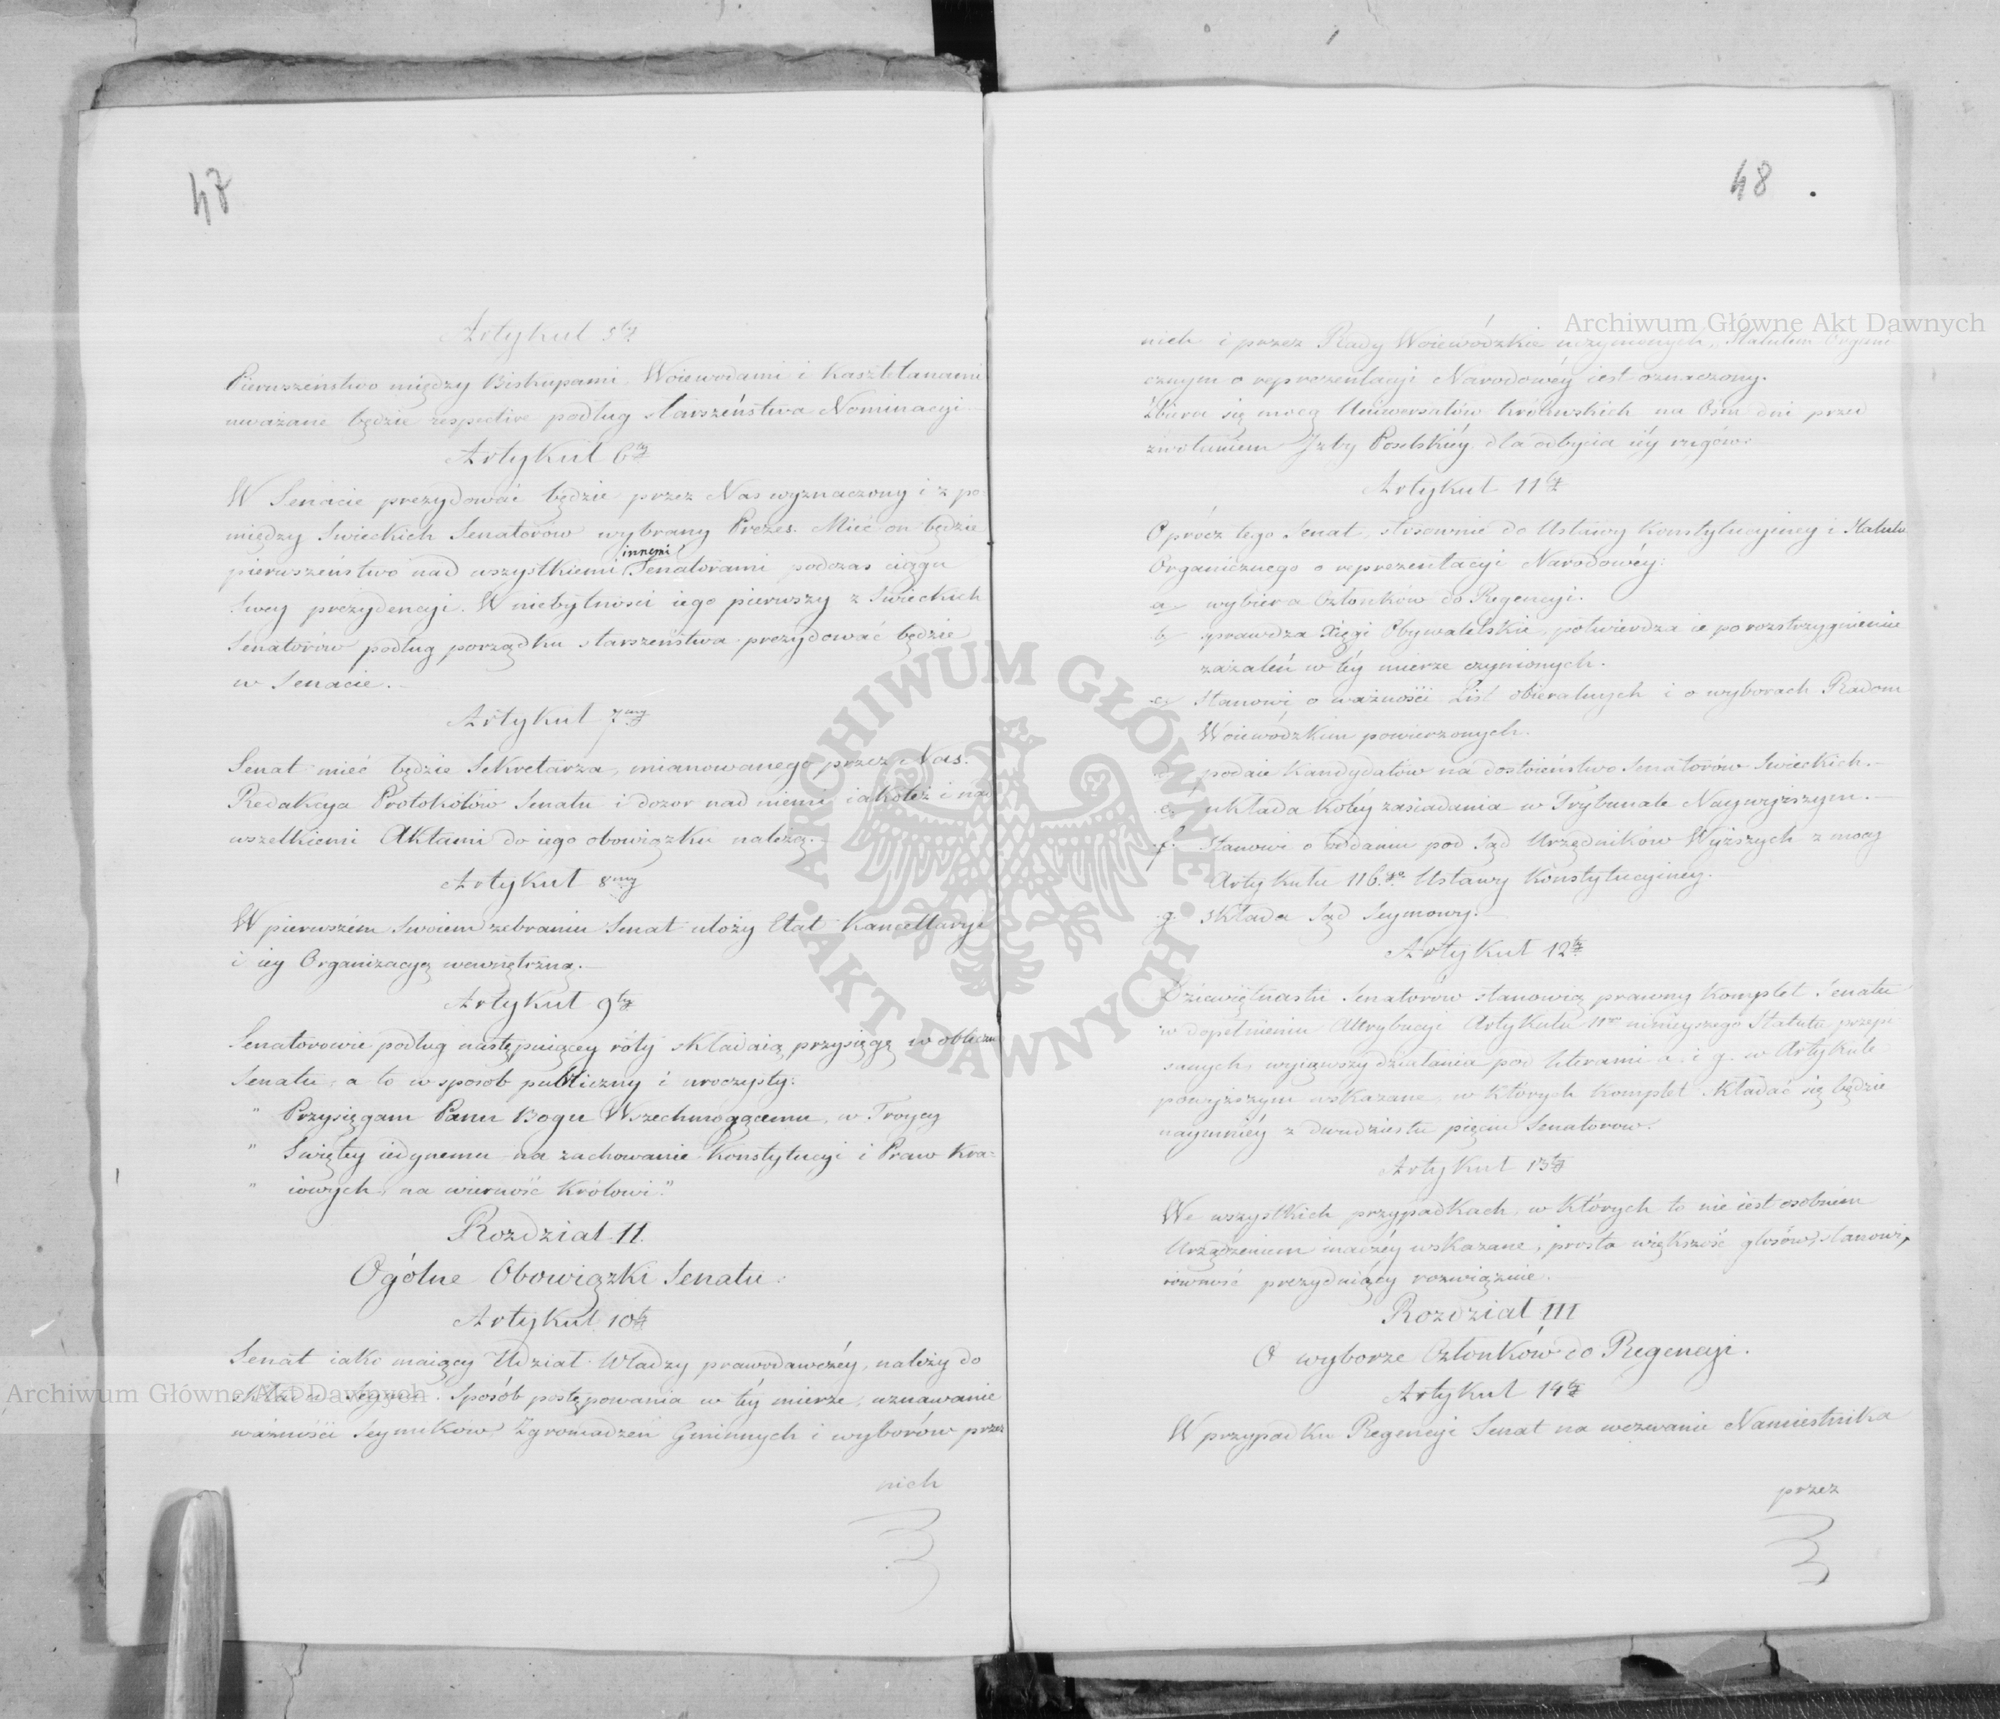 47
Artykuł 5ty
Pierwszeństwo między Biskupami, Woiewodami i Kasztelanami
uważane będzie respective podług starszeństwa Nominacyi
Artykuł 6ty
W Senacie prezydować będzie przez Nas wyznaczony i z po-
między Swieckich Senatorów wybrany Prezes. Mieć on będzie
pierwszeństwo nad wszystkiemi innemi Senatorami podczas ciągu
Swey prezydencyi. W niebytności iego pierwszy z Swieckich
Senatorów podług porządku starszeństwa prezydować będzie
w Senacie.
Artykuł 7my
Senat mieć będzie Sekretarza, mianowanego przez Nas.
Redakcya Protokółów Senatu i dozor nad niemi iakoteż i nad
wszelkiemi Aktami do iego obowiązku należą.
Artykuł 8my
W pierwszém Swoiem zebraniu Senat ułoży Etat Kancellaryi
i iey Organizacyą wewnętrzną.
Artykuł 9ty
Senatorowie podług następuiącey róty składaią przysięgę w obliczu
Senatu, a to w sposób publiczny i uroczysty:
" Przysięgam Panu Bogu Wszechmogącemu, w Troycy
" Swiętey iedynemu na zachowanie Konstytucyi i Praw Kra-
" iowych, na wierność Królowi."
Rozdział II.
Ogólne Obowiązki Senatu:
Artykuł 10ty
Senat iako maiący Udział Władzy prawodawczéy, należy do
składu Seymu. Sposób postępowania w téy mierze, uznawanie
ważności Seymików, Zgromadzeń Gminnych i wyborów przez
nich
48
nich i przez Rady Woiewódzkie uczynionych, Statutem Organi
cznym o reprezentacyi Narodowéy iest oznaczony.
Zbiera się mocą Uniwersałów Królewskich na Ośm dni przed
zwołaniem Jzby Poselskiéy, dla odbycia iéy rugów.
Artykuł 11ty
Oprócz tego Senat, stosownie do Ustawy Konstytucyiney i Statutu
Organicznego o reprezentacyi Narodowéy:
a, wybiera Członków do Regencyi.
b, sprawdza Xięgi Obywatelskie, potwierdza ie po rozstrzygnieniu
zażaleń w téy mierze czynionych.
c, Stanowi o ważności List obieralnych i o wyborach Radom
Woiewódzkim powierzonych.
d, podaie Kandydatów na dostoieństwo Senatorów Swieckich.
e, układa koléy zasiadania w Trybunale Naywyższym.
f. Stanowi o oddaniu pod Sąd Urzędników Wyższych z mocy
Artykułu 116.go Ustawy Konstytucyiney.
g. składa Sąd Seymowy.
Artykuł 12ty
Dziewiętnastu Senatorów stanowią prawny Komplet Senatu
w dopełnieniu Attrybucyi Artykułu 11go ninieyszego Statutu przepi
sanych, wyiąwszy działania pod literami a. i g. w Artykule
powyższym wskazane, w których Komplet składać się będzie
naymniéy z dwudziestu pięciu Senatorów.
Artykuł 13ty
We wszystkich przypadkach, w których to nie iest osobném
Urządzeniem inaczéy wskazane, prosta większość głosów stanowi,
równość prezyduiący rozwiązuie.
Rozdział III
O wyborze Członków do Regencyi.
Artykuł 14ty
W przypadku Regencyi Senat na wezwanie Namiestnika
przez
Archiwum Główne Akt Dawnych
Archiwum Główne Akt Dawnych
ARCHIWUM GŁÓWNE
AKT DAWNYCH